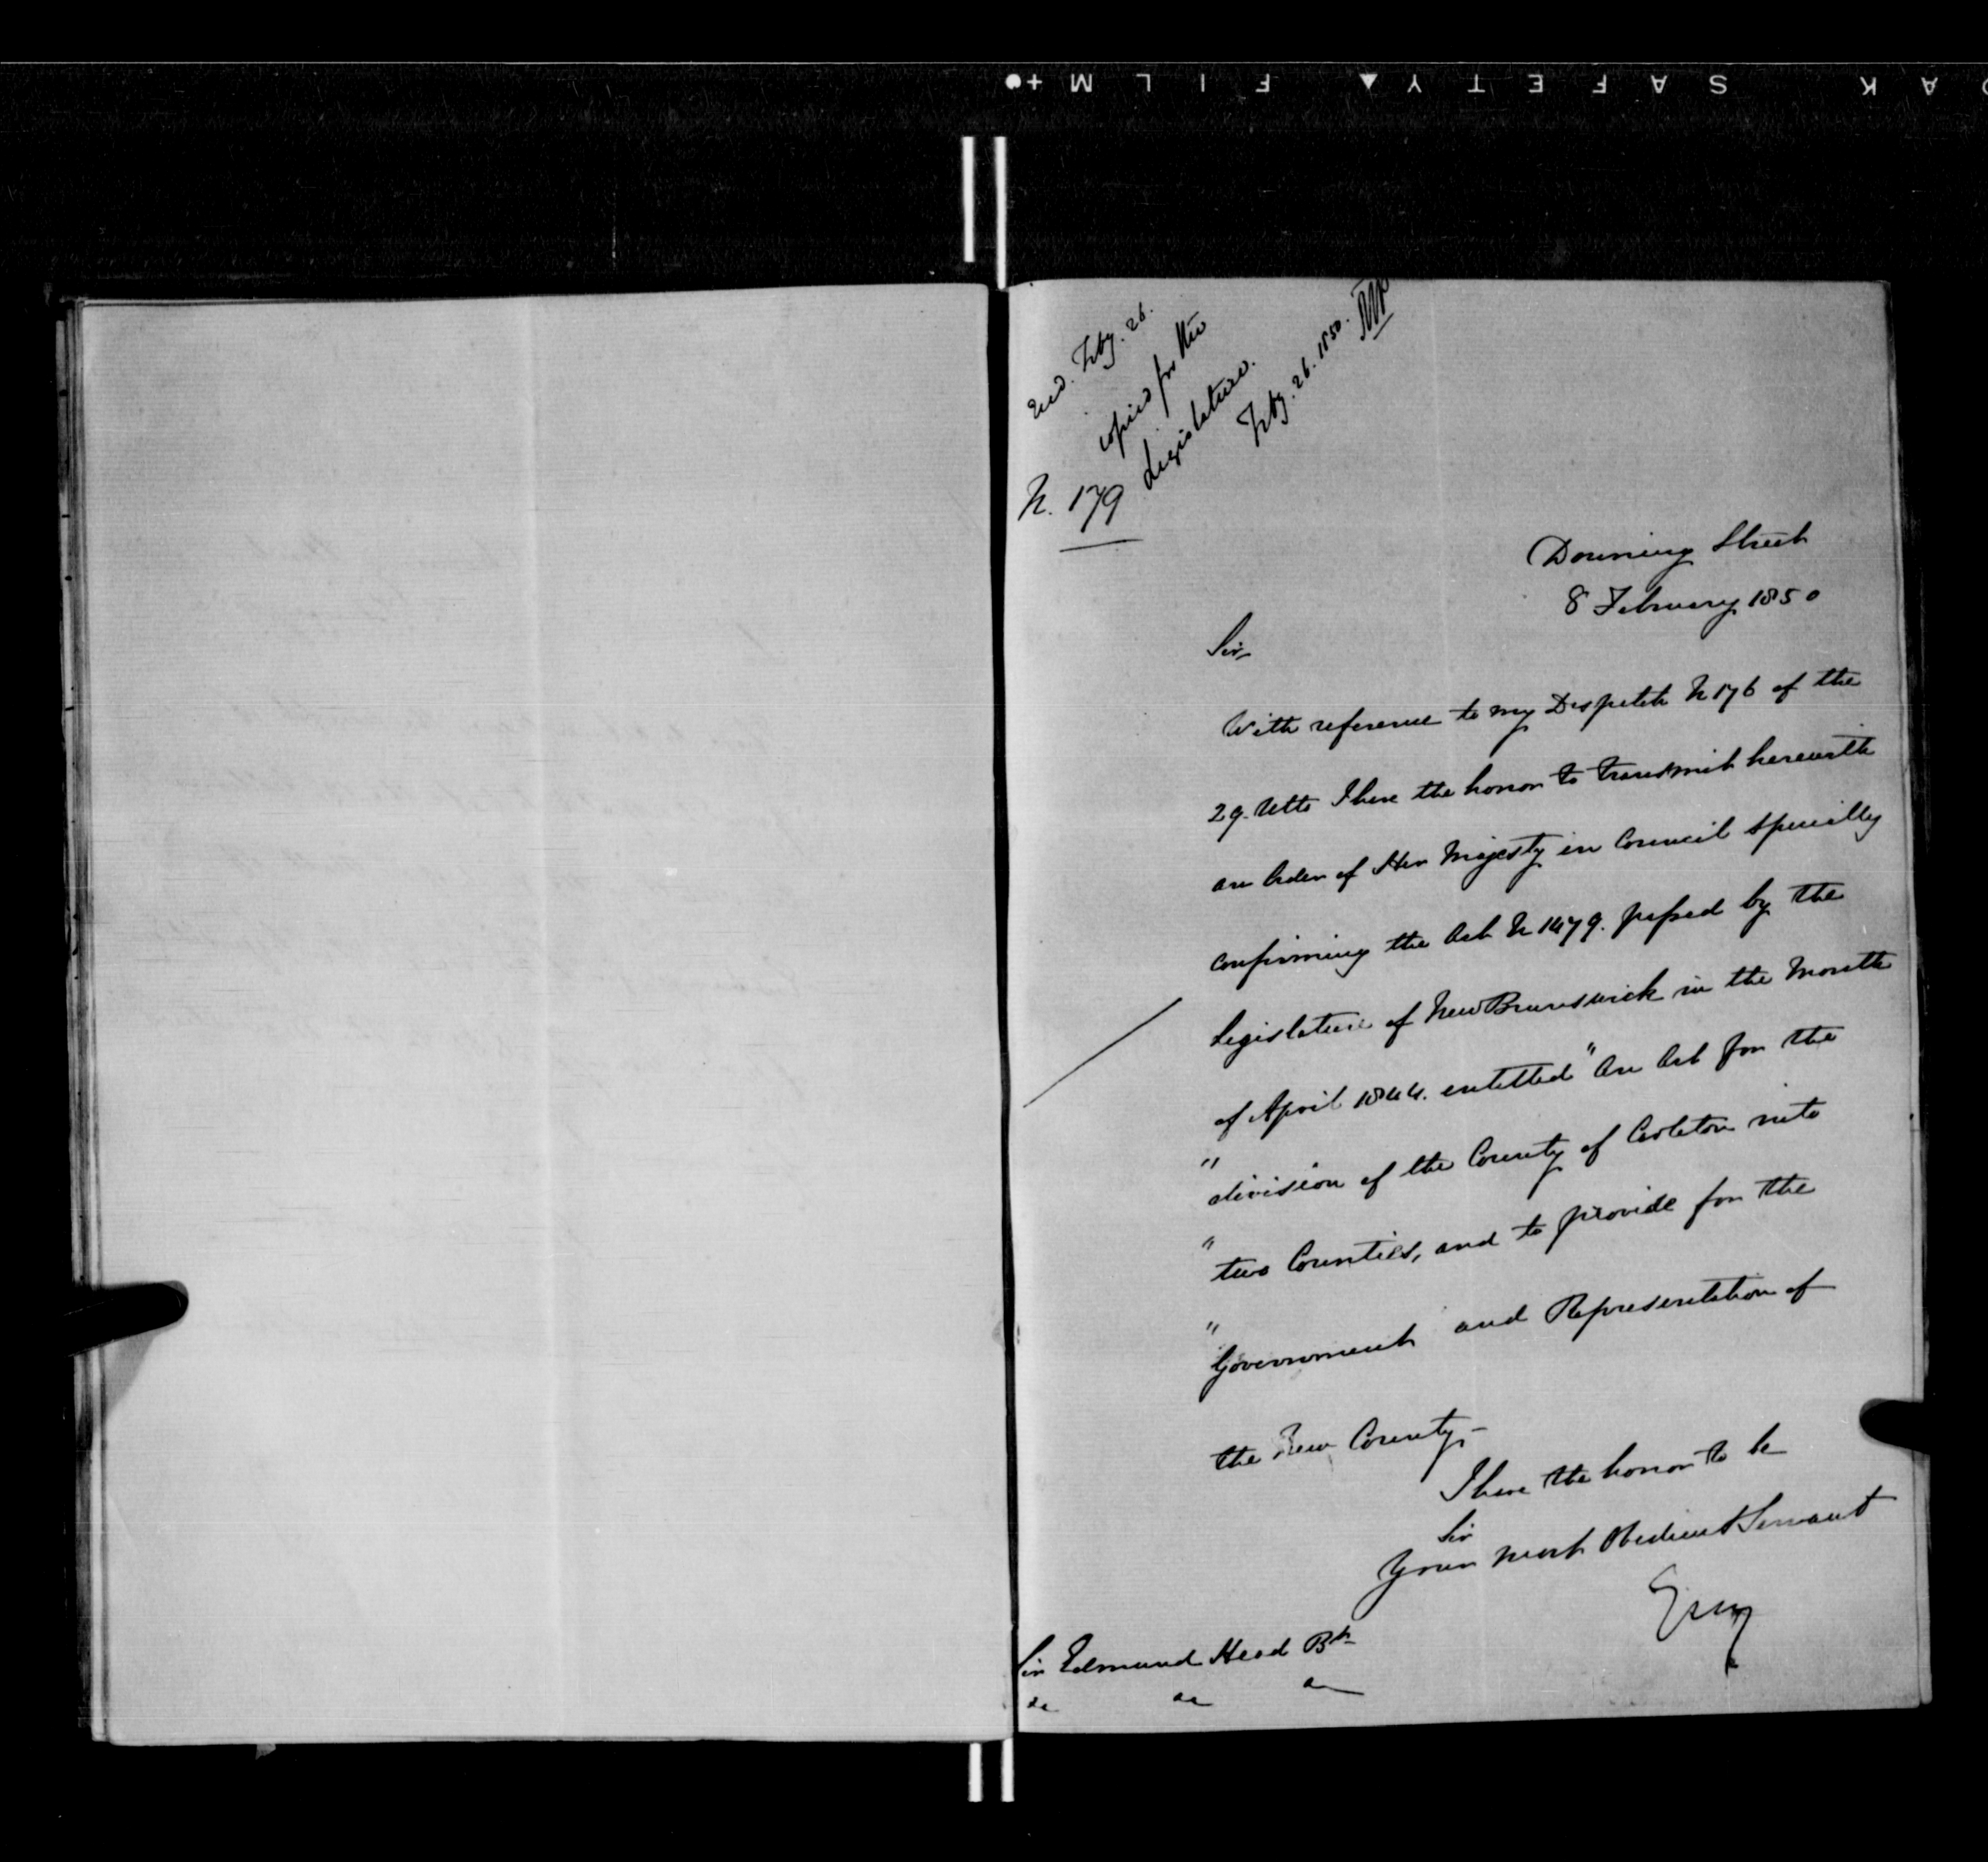 SAFETY▲FILM+●
Recd. Feby. 26.
copied for the
Legislature.
Feby. 26. 1850.
N. 179
Downing Street
8 February 1850
Sir,
With reference to my Despatch N 176 of the
29. Ulto I have the honor to transmit herewith
an Order of Her Majesty in Council specially
confirming the Act N 1479. passed by the
Legislature of New Brunswick in the Month
of April 1844. entitled "An Act for the
" division of the County of Carleton into
" two Counties, and to provide for the
" Government and Representation of
the New County,-
I have the honor to be
Sir
Your most Obedient Servant
Grey
Sir Edmund Head Bt
&c &c &c